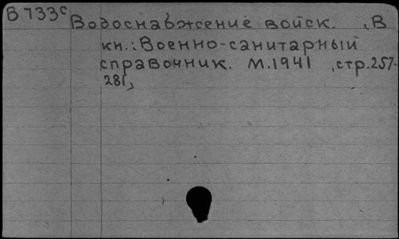 В 733с Водоснабжение войск. , В
кн.: Военно-санитарный
справочник. М.1941 ,стр.257-
281,